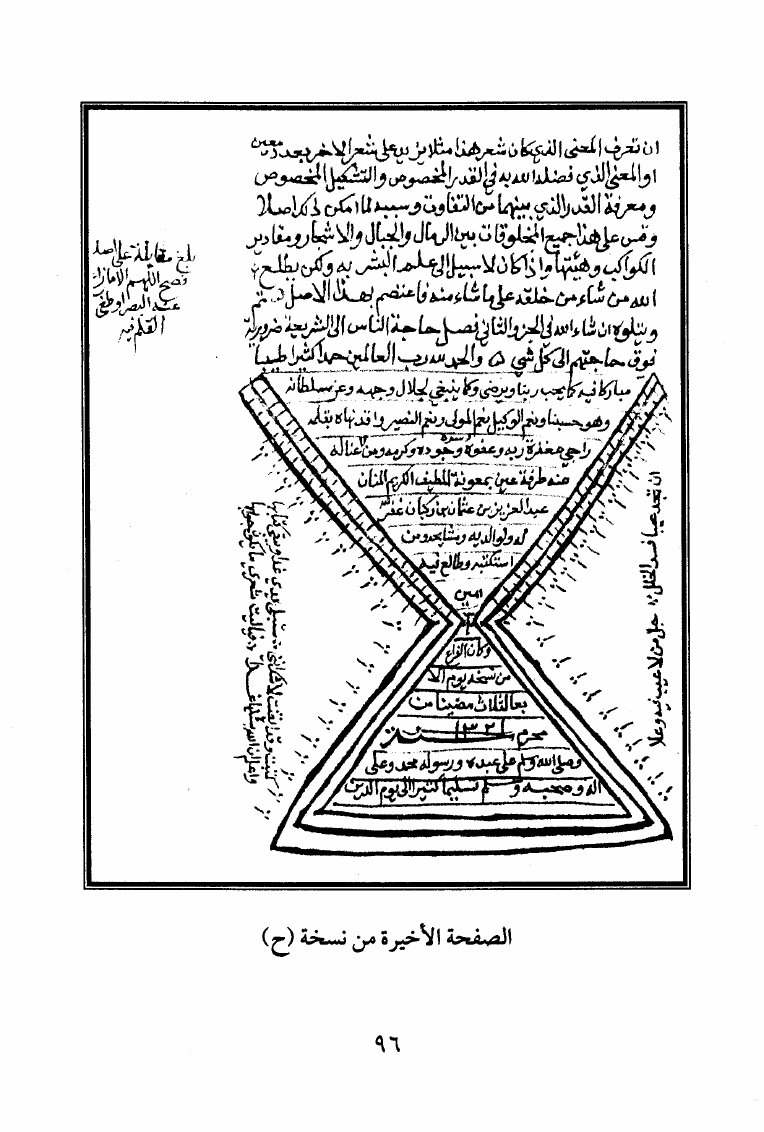 ان تعرف المعنى الذي كان شعر هذا مثلا يزيد على شعر الاخر بعدد معين
او المعنى الذي فضله الله به في القدر المخصوص والتشكيل المخصوص
ومعرفة القدر الذي بينهما من التفاوت وسببه لما امكن ذلك اصلا
وقس على هذا جميع المخلوقات بين الرمال والجبال والاشجار ومقادير
الكواكب وهيئتها واذا كان لا سبيل الى علم البشر به ولكن يطلع
الله من شاء من خلقه على ما شاء منه فاعتصم بهذا الاصل تم
ويتلوه ان شاء الله في الجزو الثاني فصل حاجة الناس الى الشريعة ضرورية
فوق حاجتهم الى كل شي والحمد لله رب العالمين حمدا كثيرا طيبا
مباركا فيه كما يحب ربنا ويرضى وكما ينبغي لجلال وجهه وعز سلطانه
وهو حسبنا ونعم الوكيل نعم المولى ونعم النصير وافد نهاه بقلمه
راجي مغفرة ربه وعفوه وجوده وكرمه ومن لا غنا له
عنه طرفة عين بمعونة اللطيف الكريم المنان
عبد العزيز بن عثمان بن ركبان غفر
له ولوالديه ومشايخه ومن
استكتبه وطالع فيه
امين
وكان الفراغ
من نسخه يوم الا
ربعا لثلاث مضين من
محرم سنة ١٣٢١
وصلى الله وسلم على عبده ورسوله محمد وعلى
اله وصحبه وسلم تسليما كثيرا الى يوم الدين
بلغ مقابلة على اصله
فصح اللهم الا ما زاغ
عنه البصر او طغى
القلم فيه
ان تجد عيبا فسد الخللا جل من لا عيب فيه وعلا
الصفحة الأخيرة من نسخة (ح)
٩٦